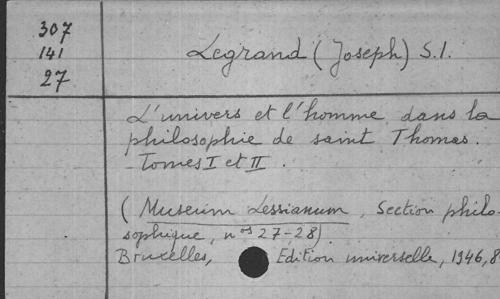 307
141
27
Legrand (Joseph) S.I.
L'univers et l'homme dans la
philosophie de saint Thomas.
Tomes I et II.
(Museum Lessianum, Section philo-
sophique, nos 27-28).
Bruxelles, Edition universelle, 1946, 8